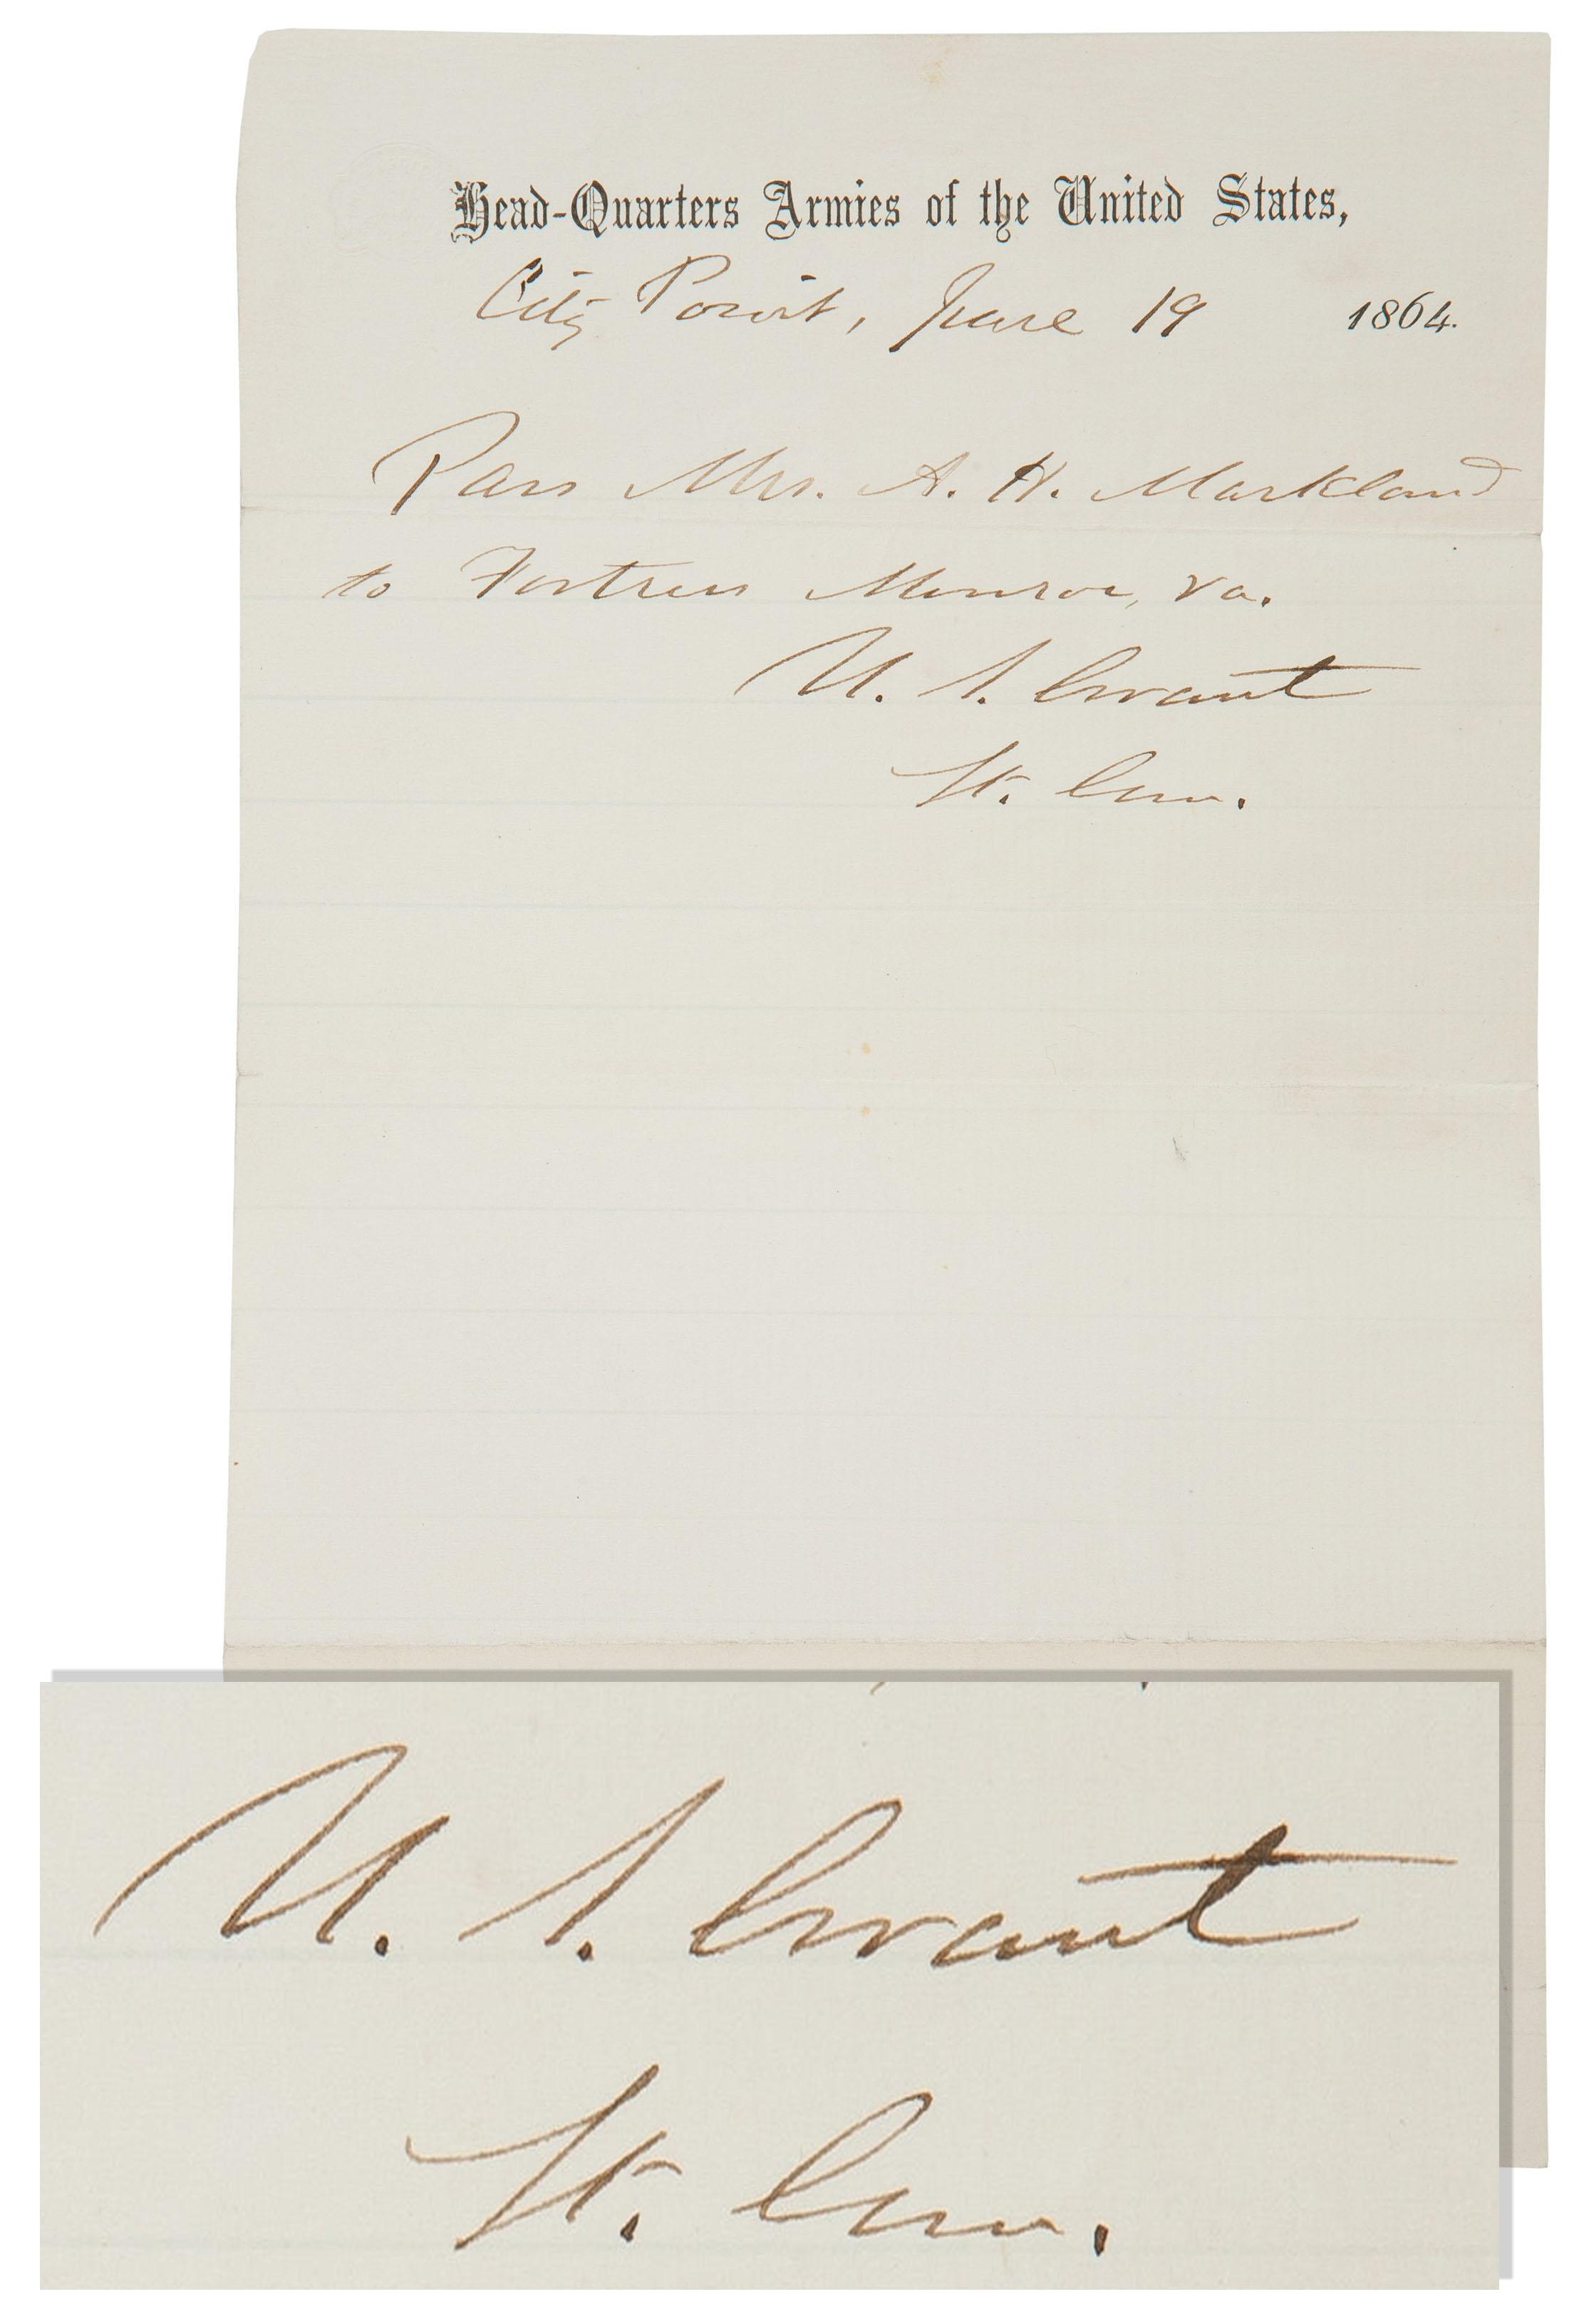 Head-Quarters Armies of the United States,
City Point, June 19 1864.
Pass Mrs. A. H. Markland
to Fortress Monroe, Va.
U. S. Grant
Lt. Gen.
U. S. Grant
Lt. Gen.